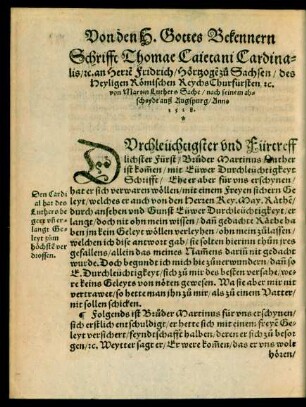 Von den H. Gottes Bekennern
Schrifft Thome Caietani Cardina-
lis/ ꝛc. an Herrẽ Fridrich/ Hörtzogẽ zů Sachsen/ des
Heyligen Römischen Reychs Churfürsten ꝛc.
von Martin Luthers Sache/ nach seinem ab-
scheyde auß Augspurg/ Anno
1518.
DVrchleüchtigster vnd Fürtreff
lichster Fürst/ Brůder Martinus Luther
ist kom̃en/ mit Eüwer Durchleüchtigkeyt
Schrifft/ Ehe er aber für vns erschynen/
hat er sich verwaren wöllen/ mit einem freyen sichern Ge
leyt/ welches er auch von den Herren Key. May. Räthẽ/
durch ansehen vnd Gunst Eüwer Durchleüchtigkeyt/ er
langt/ doch nit ohn mein wissen/ dañ gedachte Räthe ha
ben jm kein Geleyt wöllen verleyhen/ ohn mein zůlassen/
welchen ich dise antwort gab/ sie solten hierinn thůn jres
gefallens/ allein das meines Nam̃ens dariñ nit gedacht
wurde. Doch begundt ich mich hie zůuerwundern/ dañ so
E. Durchleüchtigkeyt/ sich zů mir des besten versähe/ we-
re keins Geleyts von nöten gewesen. Wa sie aber mir nit
vertrawet/ so hette man jn zů mir/ als zů einem Vatter/
nit sollen schicken.
¶ Folgends ist Brůder Martinus für vns erschynen/
sich erstlich entschuldigt/ er hette sich mit einem freyẽ Ge-
leyt versichert/ feyndtschafft halben/ deren er sich zů besor
gen/ ꝛc. Weytter sagt er/ Er were kom̃en/ das er vns wolt
hören/
Den Cardi
al hat des
Luthers be
gert vñ er-
langt Ge-
leyt zům
höchstẽ ver
drossen.